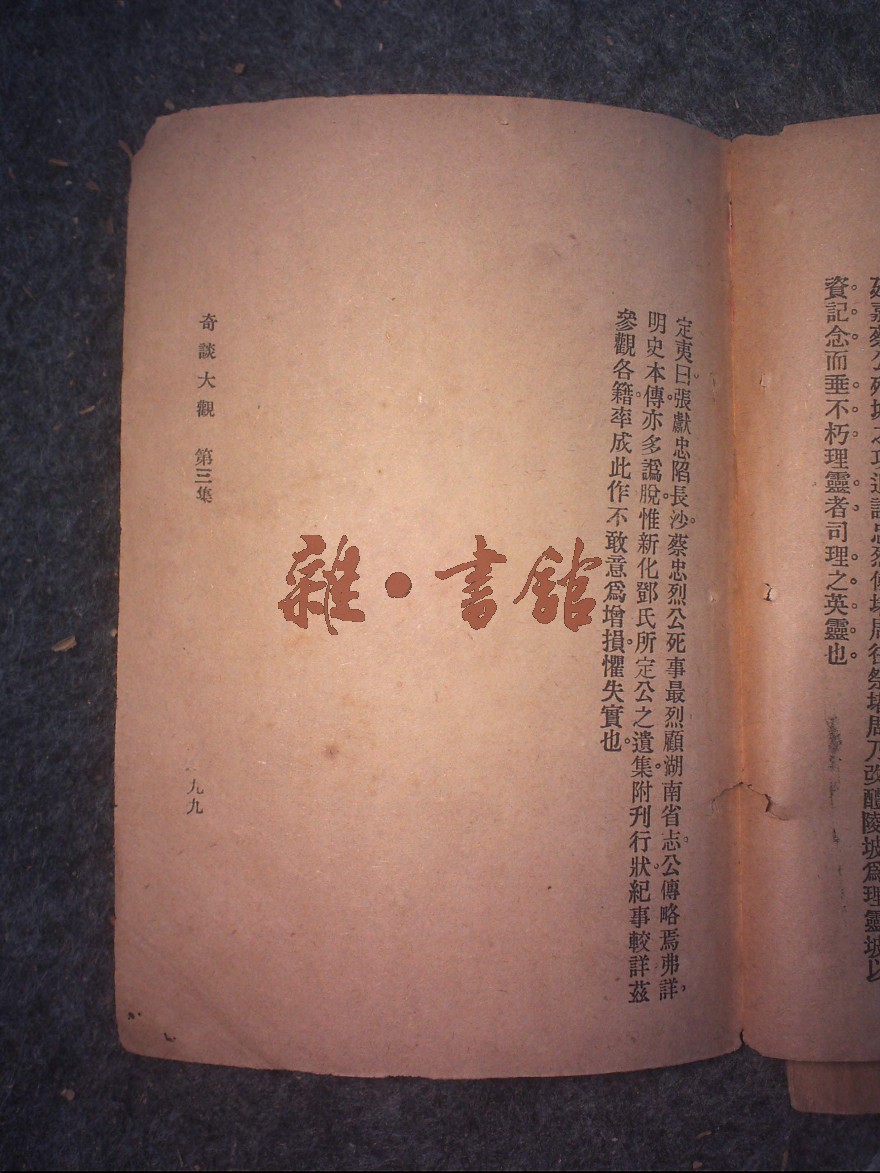 延嘉蔡公死城之功追謚忠烈
周乃改醴陵坡爲理靈坡以
資記念而垂不朽理靈者司理之英靈也
定夷曰張獻忠陷長沙蔡忠烈公死事最烈顧湖南省志公傳略焉弗詳
明史本傳亦多譌脫惟新化鄧氏所定公之遺集附刊行狀紀事較詳茲
參觀各籍率成此作不敢意爲增損懼失實也
奇談大觀 第三集
九九
雜·書館